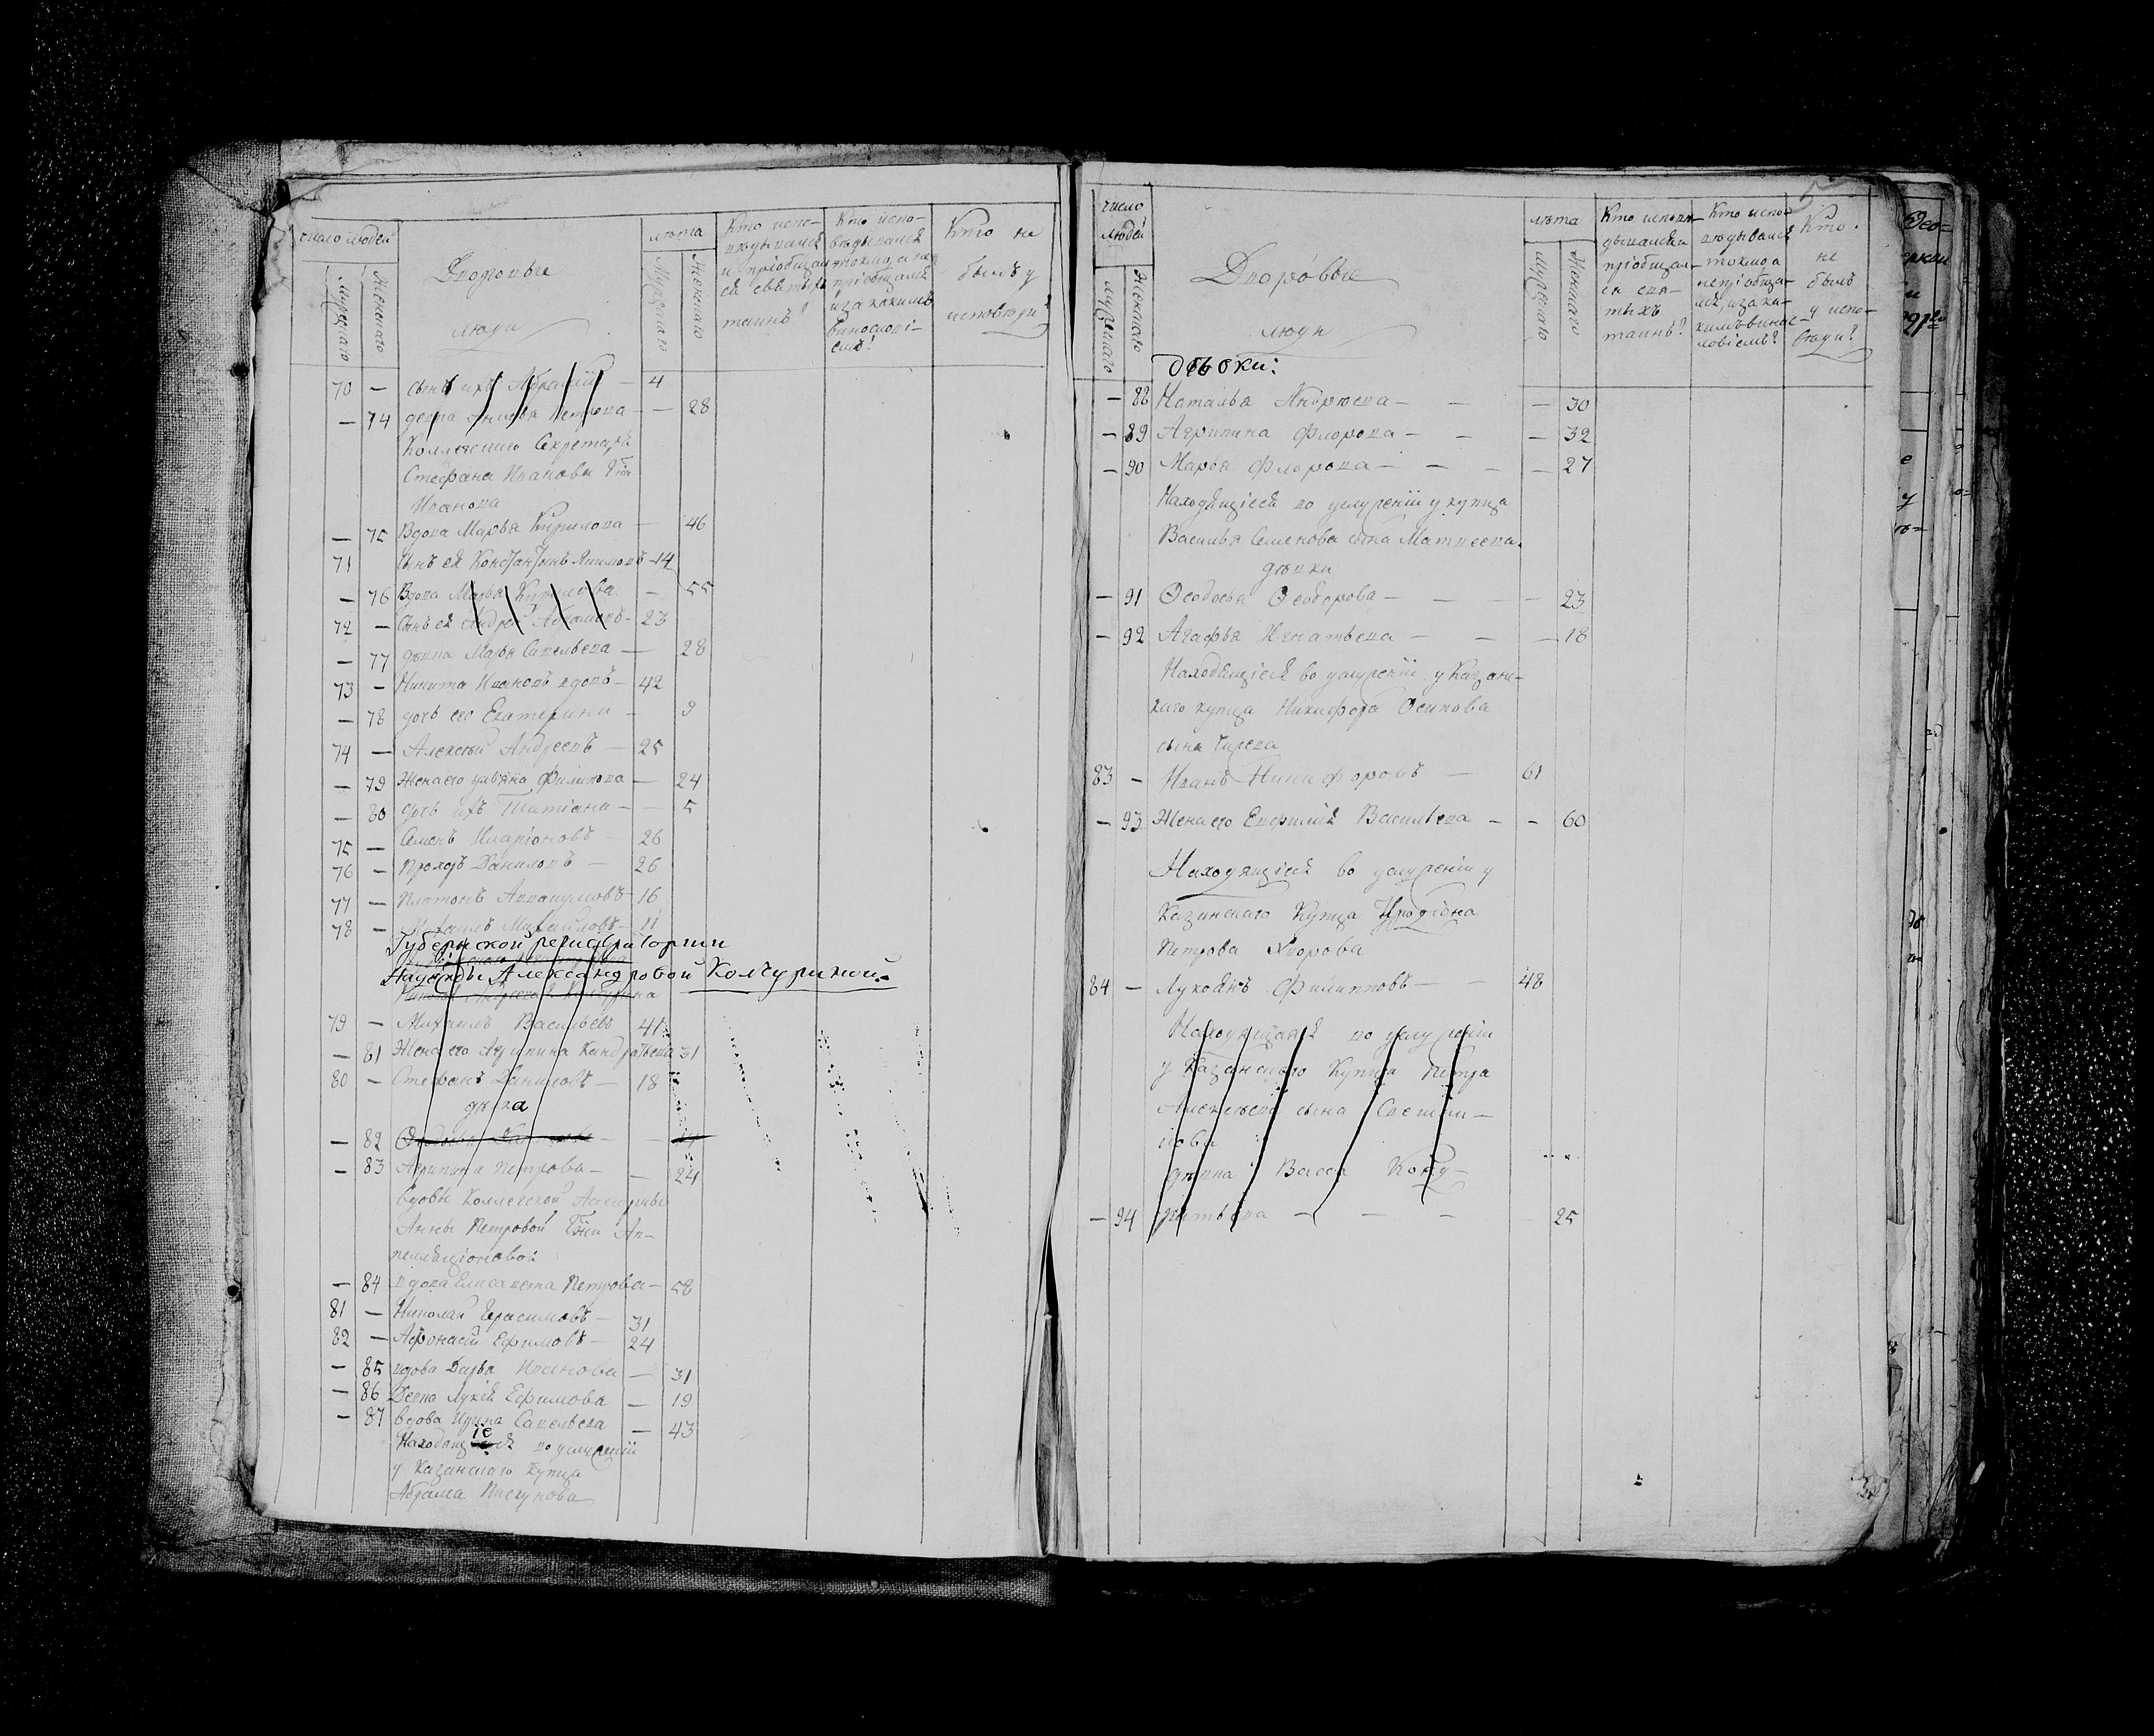 число людей
мужескаго
женскаго
Дворовые
люди
лѣта
Мужескаго
Женскаго
Кто испо-
вѣдывался
и пріобщал-
ся святыхъ
таинъ?
Кто испо-
вѣдывался
токмо, а не
пріобщался
и за какимъ
винословi-
емъ?
Кто не
былъ у
исповѣди
70 — сынъ ихъ Абрамій — 4
— 74 девка Петрова — — 28
Коллежскаго Секретаря
Стефана Иванова
Иванова
— 75 Вдова Марья Кирилова — 46
71 Сынъ ея Константинъ 14
— 76 Вдова Марья Кирилова — 55
72 — Сынъ ея Андрей Абрамовъ — 23
— 77 дѣвка Марья Савельева — 28
73 — Никита Ивановъ вдовъ — 42
— 78 дочь его Екатерина — 9
74 — Алексѣй Андреевъ — 25
— 79 Жена его Ульяна Филипова — 24
— 80 дочь ихъ Татіана — — 5
75 — Семенъ Иларіоновъ — 26
76 — Прохоръ Даниловъ — 26
77 — Платонъ 16
78 — Михайловъ — 11
Губернской регистраторши
Надежды Александровой Колчуриной.
79 — Михаилъ Васильевъ 41
— 81 Жена его Агрипина Кандратьева 31
80 — Стефанъ Даниловъ — 18
дѣвка
— 82
— 83 Агрипина Петрова — — 24
вдовы Коллежской Асесорши
Анны Петровой Гжи Ап-
пелляціоновой
— 84 вдова Елисавета Петрова — 58
81 — Николай Герасимовъ — 31
82 — Афонасій Ефимовъ — 24
— 85 вдова Дарья Иванова — 31
— 86 Девка Лукія Ефимова — 19
— 87 вдова Ирина Савельева — 43
Находящіеся во услуженіи
у Казанскаго Купца
Абрама Пискунова
число
людей
мужескаго
женскаго
Дворовые
люди
лѣта
мужескаго
Женскаго
Кто исповѣ-
дывался и
пріобщал-
ся свя-
тыхъ
таинъ?
Кто испо-
вѣдывался
токмо а
не пріобща-
лся, и за ка-
кимъ винос-
ловіемъ?
Кто
не
былъ
у испо-
вѣди?
5
дѣвки:
— 88 Наталья Андреева — — — 30
— 89 Агрипина Флорова — — — 32
— 90 Марья Флорова — — — — 27
Находящіеся во услуженіи у купца
Василья Семенова сына Матвеева.
дѣвки
— 91 Ѳедосья Ѳедорова — — — 23
— 92 Агафья Игнатьева — — — 18
Находящіеся во услуженіи у Казанс-
каго купца Никифора Осипова
сына
83 — Иванъ Никифоровъ — 61
— 93 Жена его Евфимія Васильева — — 60
Находящіеся во услуженіи у
Казанскаго Купца Иродіона
Петрова
84 — Лукьянъ Филипповъ — — 48
Находящаяся во услуженіи
у Казанскаго Купца Петра
Алексѣева сына
дѣвка Васса Кон-
— 94 дратьева — — — 25